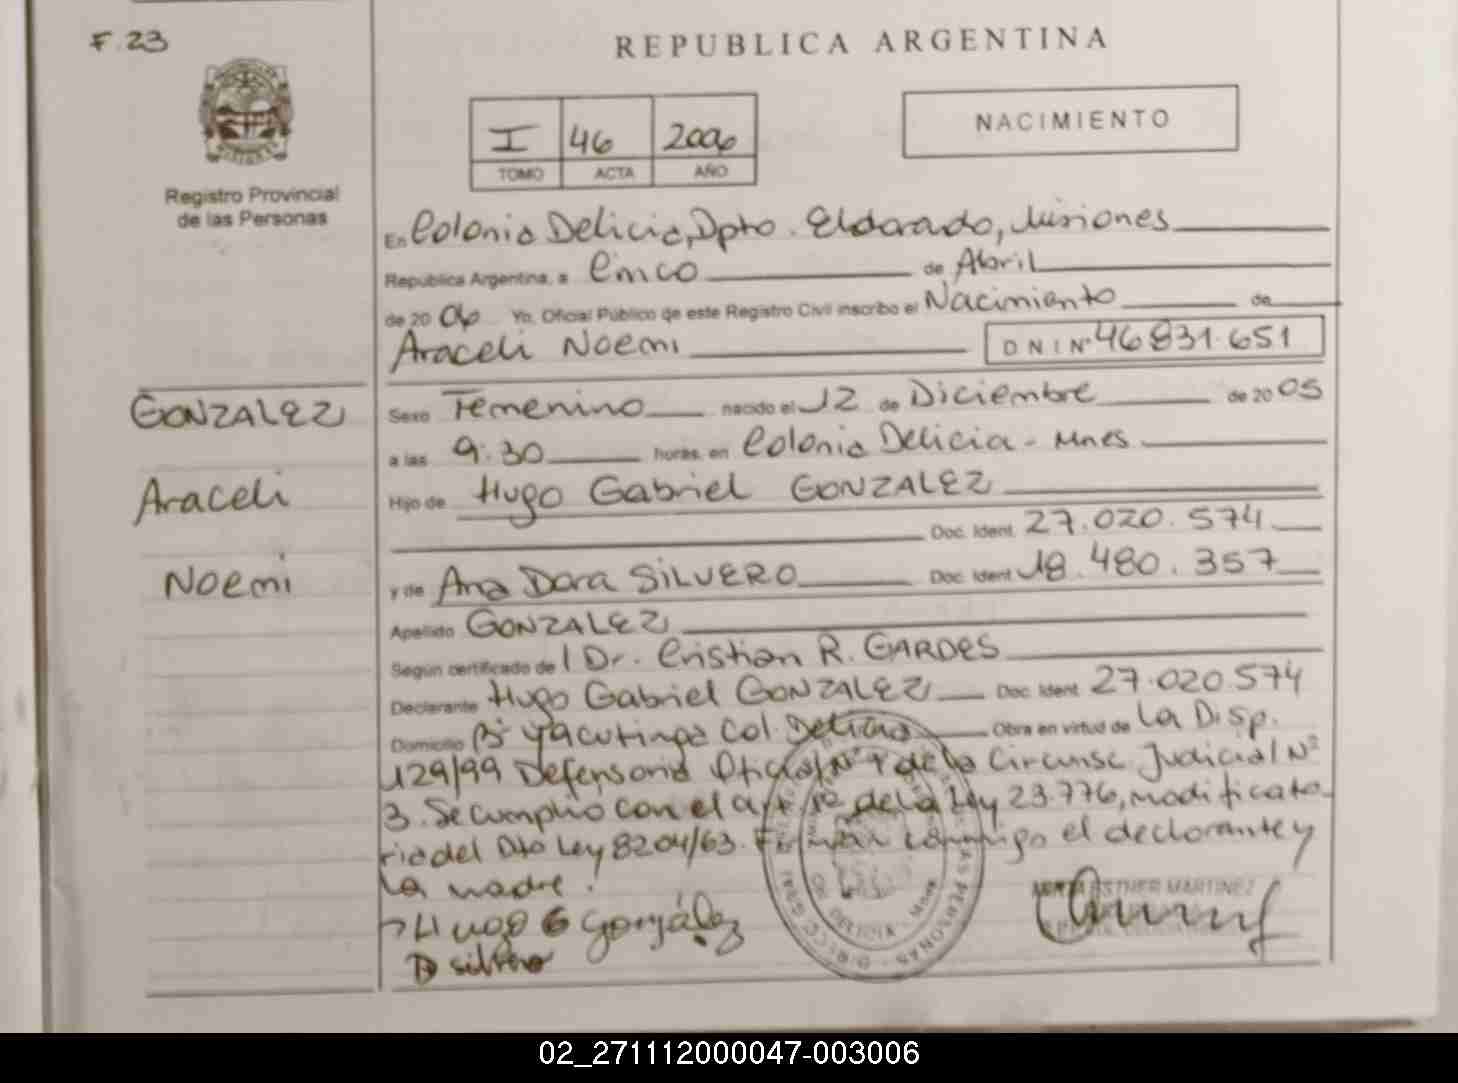 F. 23
REPUBLICA ARGENTINA
I 46 2006
TOMO ACTA AÑO
NACIMIENTO
Registro Provincial
de las Personas
En Colonia Delicia, Dpto. Eldorado, Misiones
República Argentina, a Cinco de Abril
de 20 06 Yo, Oficial Público de este Registro Civil inscribo el Nacimiento de
Araceli Noemi DNI Nº 46831.651
GONZALEZ
Araceli
Noemi
Sexo Femenino nacido el 12 de Diciembre de 20 05
a las 9:30 horas, en Colonia Delicia - Mnes
Hijo de Hugo Gabriel GONZALEZ
Doc. Ident. 27.020.574
y de Ana Dora SILVERO Doc. Ident. 18.480.357
Apellido GONZALEZ
Según certificado de Dr. Cristian R. GARDES
Declarante Hugo Gabriel GONZALEZ Doc. Ident. 27.020.574
Domicilio Bº Yacutinga Col. Delicia Obra en virtud de La Disp.
129/99 Defensoria Oficial Nº 1 de la Circunsc. Judicial Nº
3. Se cumplio con el art. de la Ley 23.776, modificato-
ria del Dto Ley 8204/63. Firman conmigo el declarante y
La madre.
Hugo G González
D silvero
ESTHER MARTINEZ
DELICIA - Mnes
PERSONAS
02_271112000047-003006